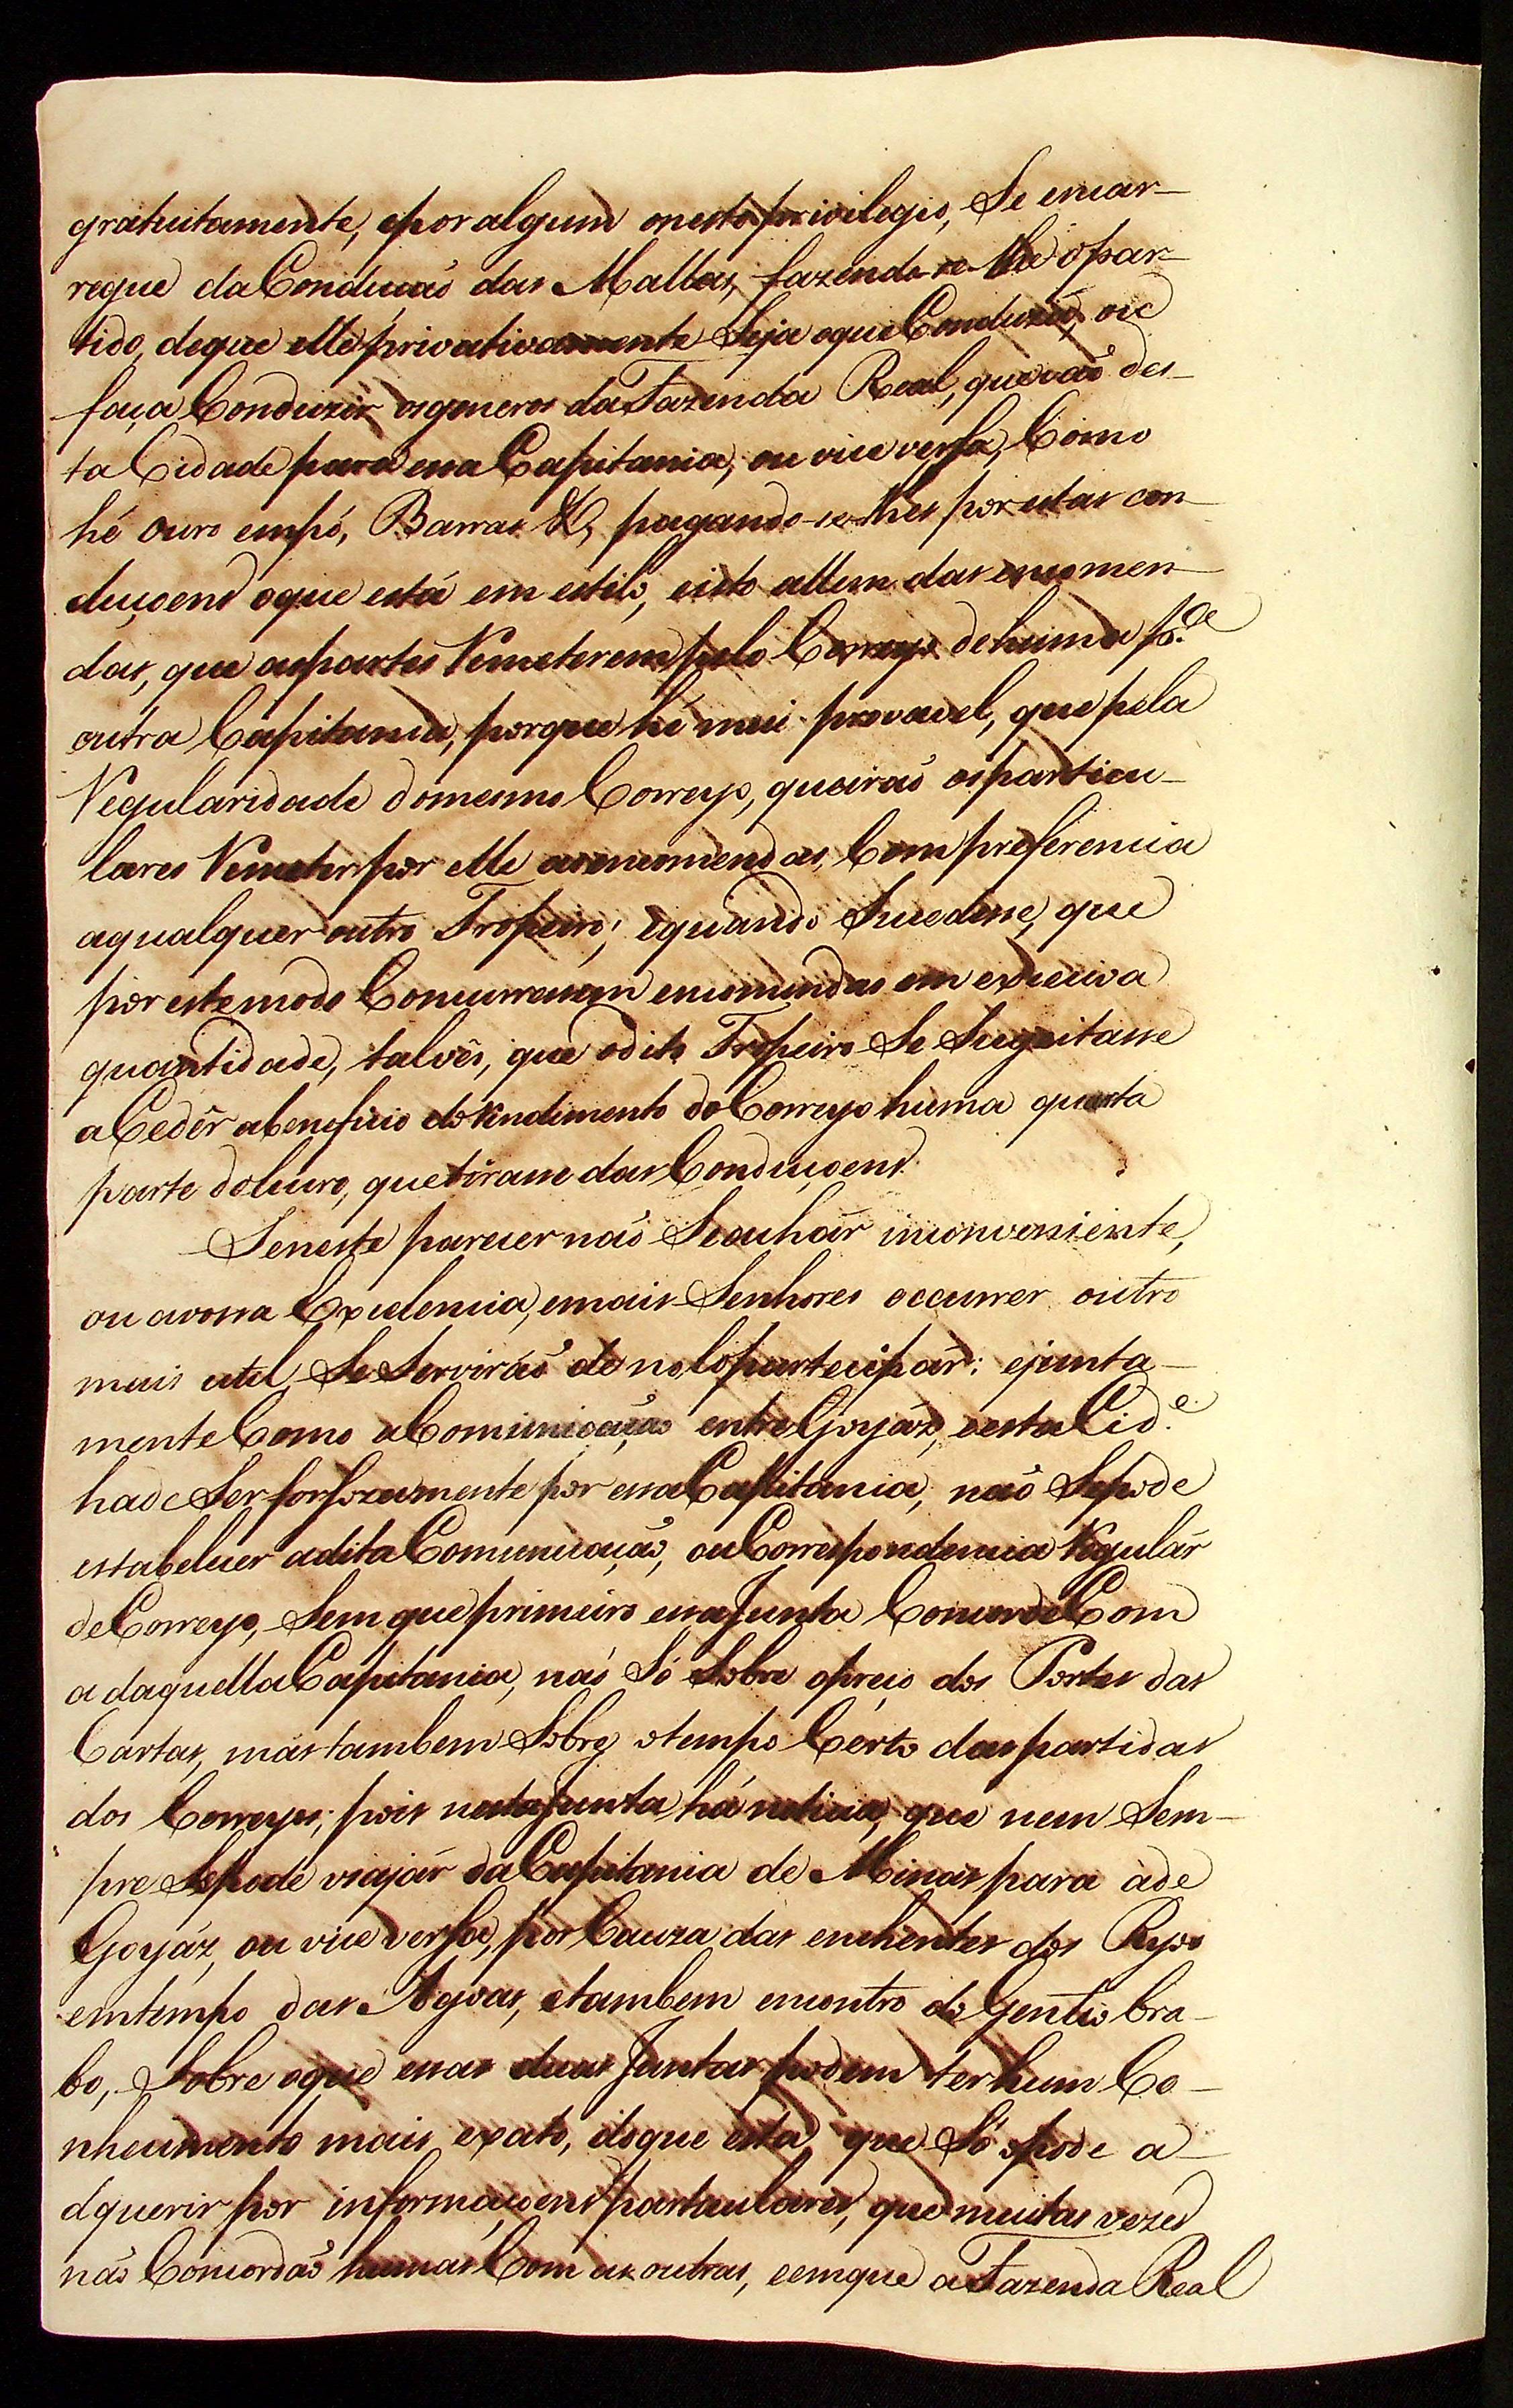 gratuitamente, epor algum onesto privilegio, Se encar-
regue da Conducaõ das Mallas, fazendo-se-lhe opar-
tido, deque elle privativamente Seja oque Conduza, ou
faça Conduzir osgeneros da Fazenda Real, que vaõ des-
ta Cidade para essa Capitania, ou vice versa, Como
hé Ouro empó, Barras &, pagando-se-lhes por estas con-
duçoens oque está em estilo, eisto allem das encomen-
das, que aspartes Remeterem pelo Correyo dehuma p.ª
outra Capitania, porque hé mui provavel, que pela
Regularidade domesmo Correyo, queiraõ osparticu-
lares Remeter por elle asencomendas, Com preferencia
aqualquer outro Tropeiro; equando Sucedesse, que
por este modo Concurressem encomendas em excessiva
quantidade, talvês, que odito Tropeiro Se Sugeitasse
a Cedêr abeneficio do Rendimento do Correyo huma quarta
parte dolucro, que tirasse das Conduçoens.
Seneste parecer naõ Seachár inconveniente,
ou avossa Excelencia, emais Senhores occurrer outro
mais util, Se Serviráõ de nolo partecipár: ejunta-
mente Como a Comunicaçaõ entre Goyáz, eesta Cid.e
hade Ser forsozamente por essa Capitania, naõ Sepode
estabelecer adita Comunicaçaõ, ou Correspondencia Regulár
de Correyo, Sem que primeiro essa Junta Concorde Com
a daquella Capitania, naõ Só Sobre opreço dos Portes das
Cartas, mas tambem Sobre otempo Cérto das partidas
dos Correyos; pois nesta Junta há noticia, que nem Sem-
pre Sepode viajár da Capitania de Minas para ade
Goyáz, ou vice versa, por Cauza das enchentes dos Ryos
emtempo das Agoas, etambem encontro do Gentio bra-
bo, Sobre oque essas duas Juntas podem ter hum Co-
nhecimento mais exato, doque esta, que Só opode a-
dquerir por informaçoens particulares, que muitas vezes
naõ Concordaõ humas Com as outras, eemque a Fazenda Real